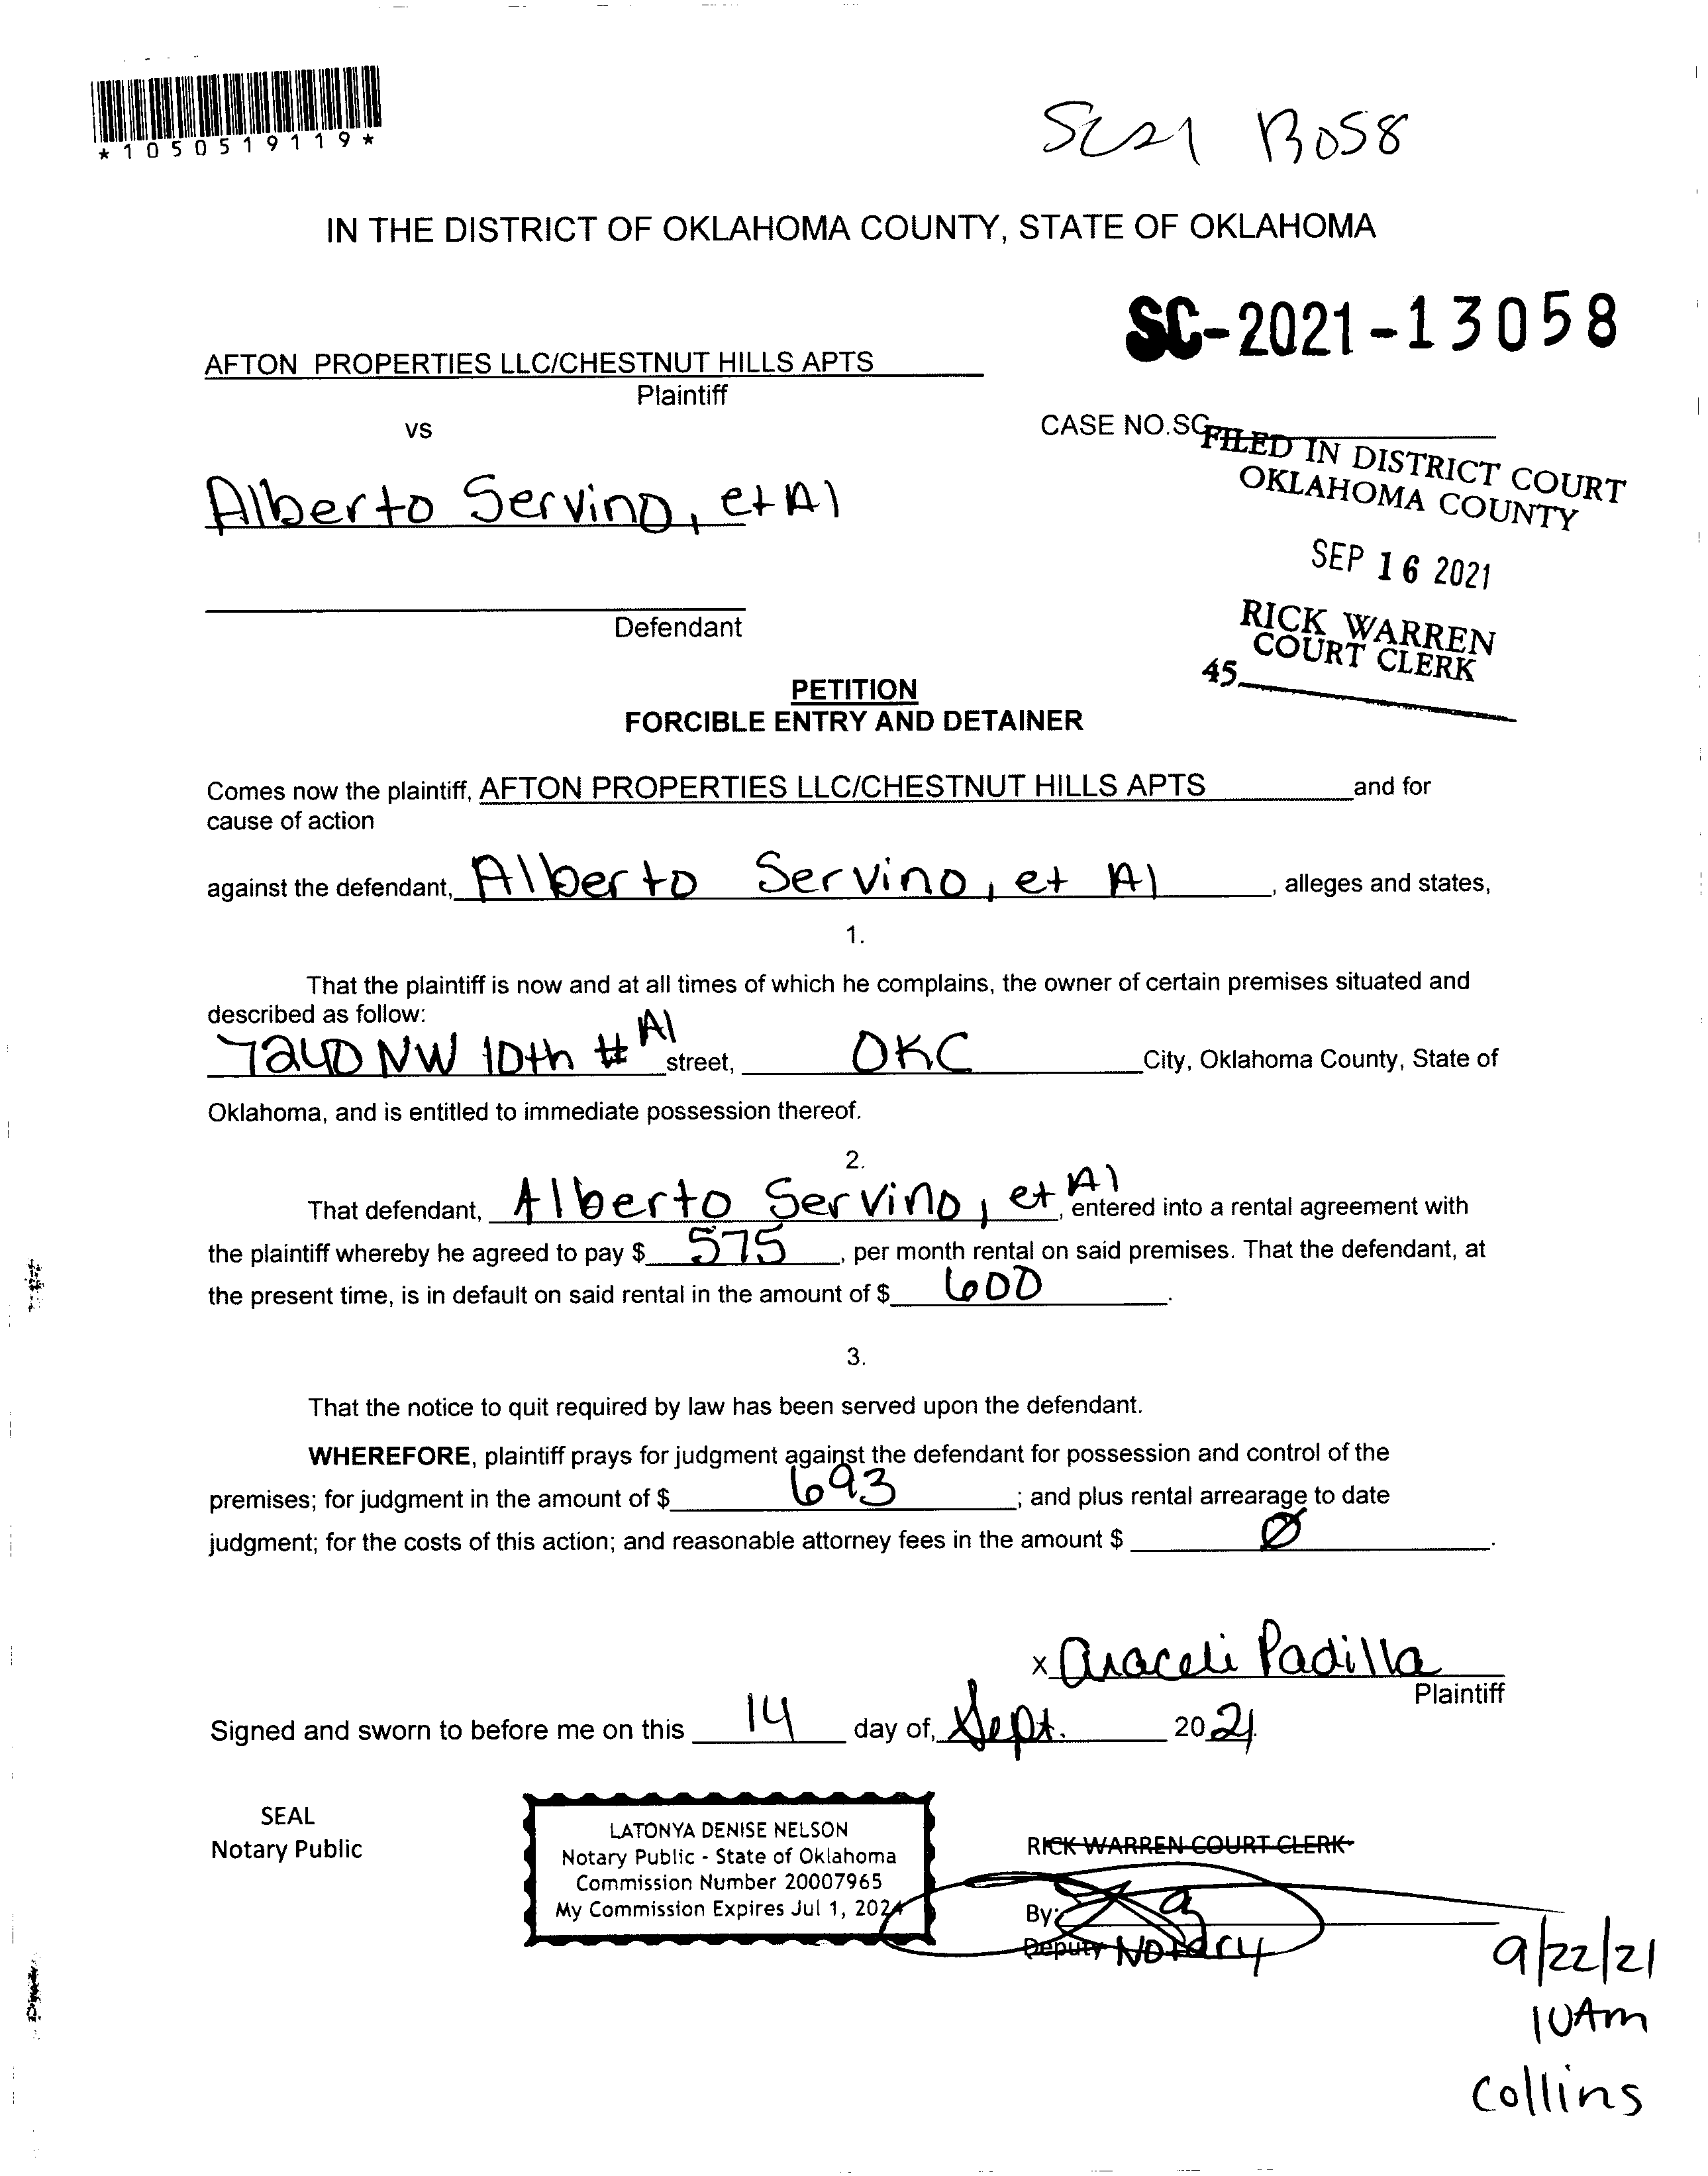 *1050519119*
SC21 13058
IN THE DISTRICT OF OKLAHOMA COUNTY, STATE OF OKLAHOMA
SC-2021-13058
AFTON PROPERTIES LLC/CHESTNUT HILLS APTS
Plaintiff
vs
CASE NO.SC
FILED IN DISTRICT COURT
OKLAHOMA COUNTY
Alberto Servino, et Al
SEP 16 2021
RICK WARREN
COURT CLERK
45
Defendant
PETITION
FORCIBLE ENTRY AND DETAINER
Comes now the plaintiff, AFTON PROPERTIES LLC/CHESTNUT HILLS APTS and for
cause of action
against the defendant, Alberto Servino, et Al, alleges and states,
1.
That the plaintiff is now and at all times of which he complains, the owner of certain premises situated and
described as follow:
7240 NW 10th # A1 street, OKC City, Oklahoma County, State of
Oklahoma, and is entitled to immediate possession thereof.
2.
That defendant, Alberto Servino, et Al, entered into a rental agreement with
the plaintiff whereby he agreed to pay $ 575, per month rental on said premises. That the defendant, at
the present time, is in default on said rental in the amount of $ 600.
3.
That the notice to quit required by law has been served upon the defendant.
WHEREFORE, plaintiff prays for judgment against the defendant for possession and control of the
premises; for judgment in the amount of $ 693; and plus rental arrearage to date
judgment; for the costs of this action; and reasonable attorney fees in the amount $ Ø.
x Araceli Padilla
Plaintiff
Signed and sworn to before me on this 14 day of, Sept. 2021.
SEAL
Notary Public
LATONYA DENISE NELSON
Notary Public - State of Oklahoma
Commission Number 20007965
My Commission Expires Jul 1, 2024
RICK WARREN COURT CLERK
By:
Deputy Notary
9/22/21
10Am
Collins